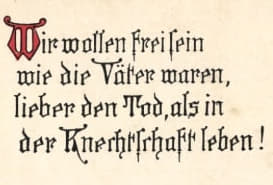 Wir wollen frei sein
wie die Väter waren,
lieber den Tod, als in
der Knechtschaft leben!